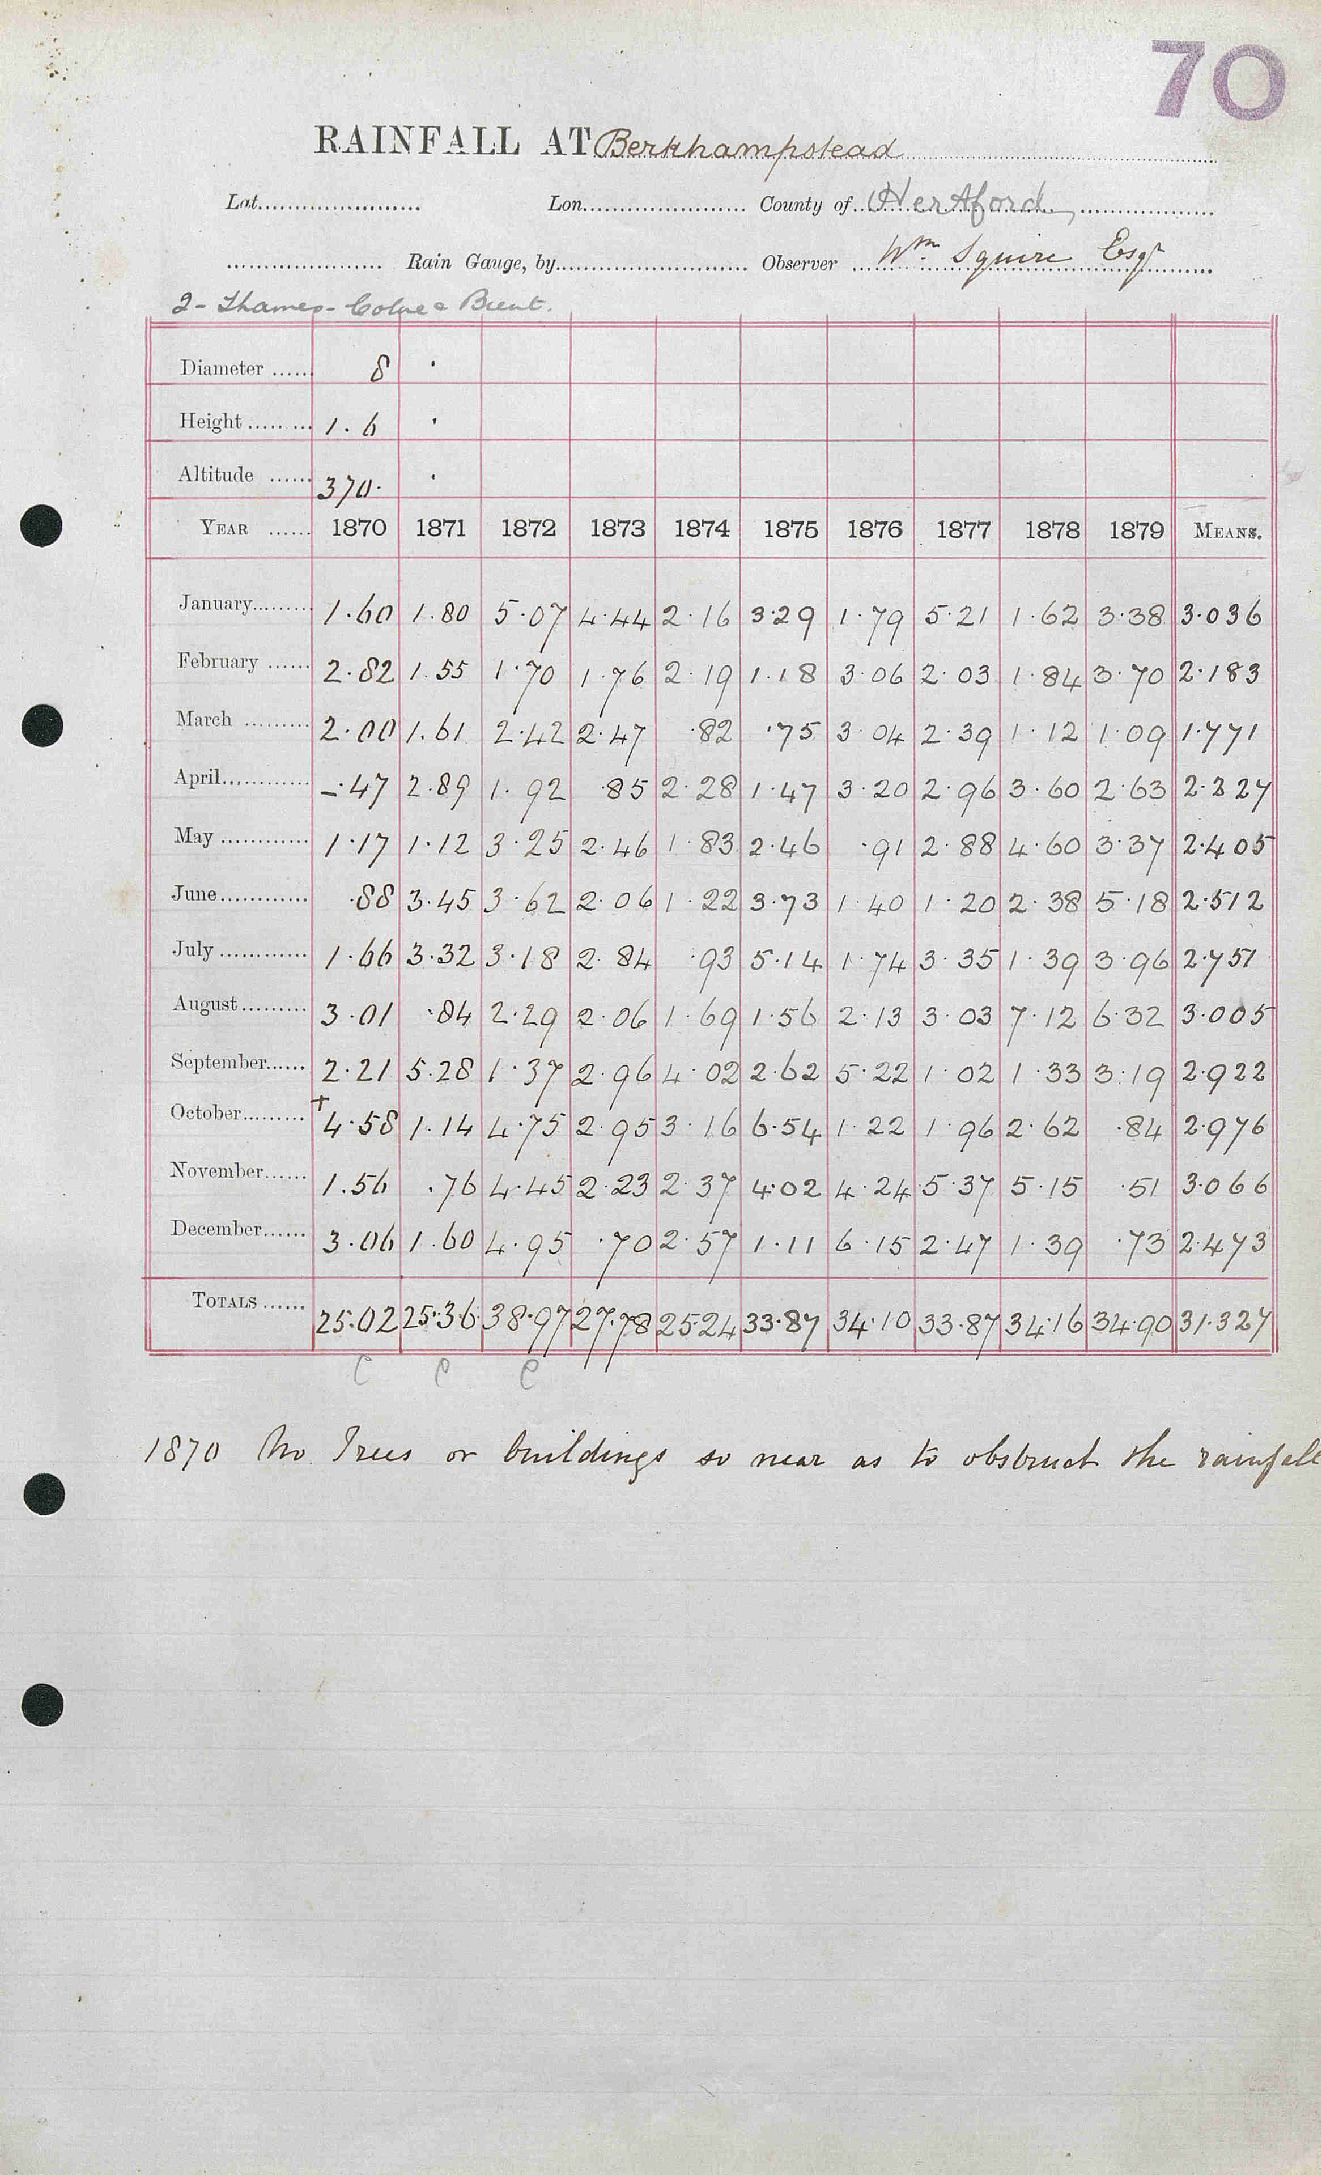 70
RAINFALL AT Berkhampstead
Lat. Lon. County of Hertford
Rain Gauge, by Observer Wm. Squire Esqr
2 - Thames - Colne & Brent.
Diameter 8 ·
Height 1.6 ·
Altitude 370. ·
YEAR 1870 1871 1872 1873 1874 1875 1876 1877 1878 1879 MEANS.
January 1.60 1.80 5.07 4.44 2.16 3.29 1.79 5.21 1.62 3.38 3.036
February 2.82 1.55 1.70 1.76 2.19 1.18 3.06 2.03 1.84 3.70 2.183
March 2.00 1.61 2.42 2.47 .82 .75 3.04 2.39 1.12 1.09 1.771
April -.47 2.89 1.92 .85 2.28 1.47 3.20 2.96 3.60 2.63 2.227
May 1.17 1.12 3.25 2.46 1.83 2.46 .91 2.88 4.60 3.37 2.405
June .88 3.45 3.62 2.06 1.22 3.73 1.40 1.20 2.38 5.18 2.512
July 1.66 3.32 3.18 2.84 .93 5.14 1.74 3.35 1.39 3.96 2.751
August 3.01 .84 2.29 2.06 1.69 1.56 2.13 3.03 7.12 6.32 3.005
September 2.21 5.28 1.37 2.96 4.02 2.62 5.22 1.02 1.33 3.19 2.922
October +4.58 1.14 4.75 2.95 3.16 6.54 1.22 1.96 2.62 .84 2.976
November 1.56 .76 4.45 2.23 2.37 4.02 4.24 5.37 5.15 .51 3.066
December 3.06 1.60 4.95 .70 2.57 1.11 6.15 2.47 1.39 .73 2.473
TOTALS 25.02 25.36 38.97 27.78 25.24 33.87 34.10 33.87 34.16 34.90 31.327
C C C
1870 No Trees or buildings so near as to obstruct the rainfall